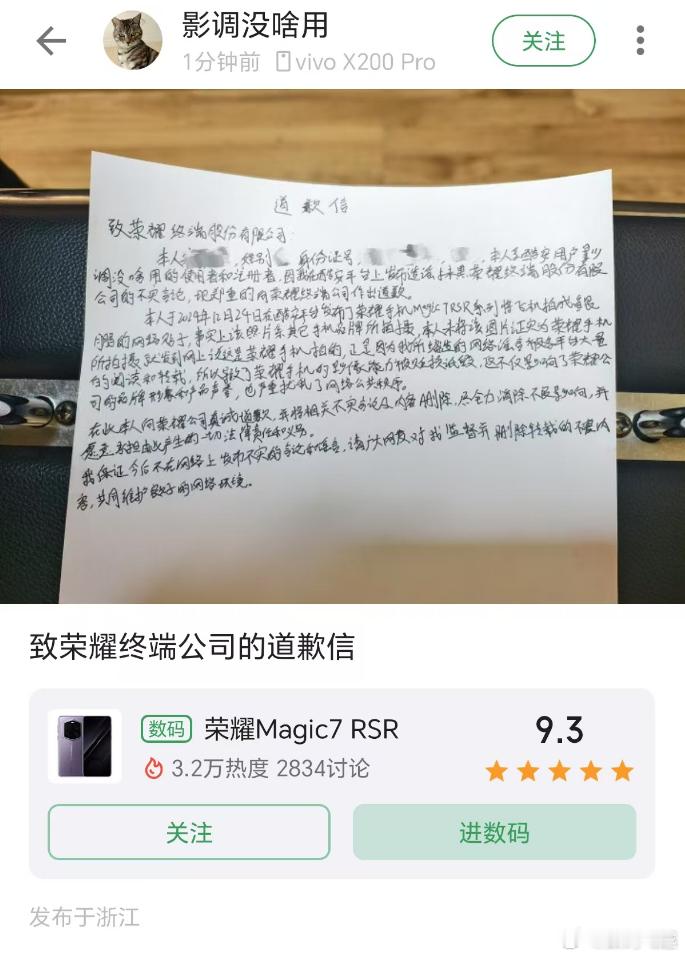 影调没啥用
1分钟前 vivo X200 Pro
关注
道歉信
致荣耀终端股份有限公司:
本人 性别 身份证号 , 本人系酷安用户影
调没啥用的使用者和注册者,因我在酷安平台上发布造谣抹黑荣耀终端股份有限
公司的不实言论,现郑重的向荣耀终端公司作出道歉。
本人于2024年12月24日在酷安平台发布了荣耀手机Magic7RSR系列将飞机拍成
的网络帖子,事实上该照片系其它手机品牌所拍摄,本人未将该图片证实为荣耀手机
所拍摄就发到网上说这是荣耀手机拍的,正是因为我所编造的网络谣言被各平台大量
的阅读和转载,所以导致了荣耀手机的影像能力被贬损诋毁,这不仅影响了荣耀公
司的品牌形象和产品声誉,也严重扰乱了网络公共秩序。
在此本人向荣耀公司真诚道歉,并将相关不实言论及内容删除,尽全力消除不良影响,并
愿意承担由此产生的一切法律责任和义务。
我保证今后不在网络上发布不实的言论和谣言,请广大网友对我监督并删除转载的不良内
容,共同维护良好的网络环境。
致荣耀终端公司的道歉信
数码 荣耀Magic7 RSR 9.3
3.2万热度 2834讨论
关注 进数码
发布于浙江